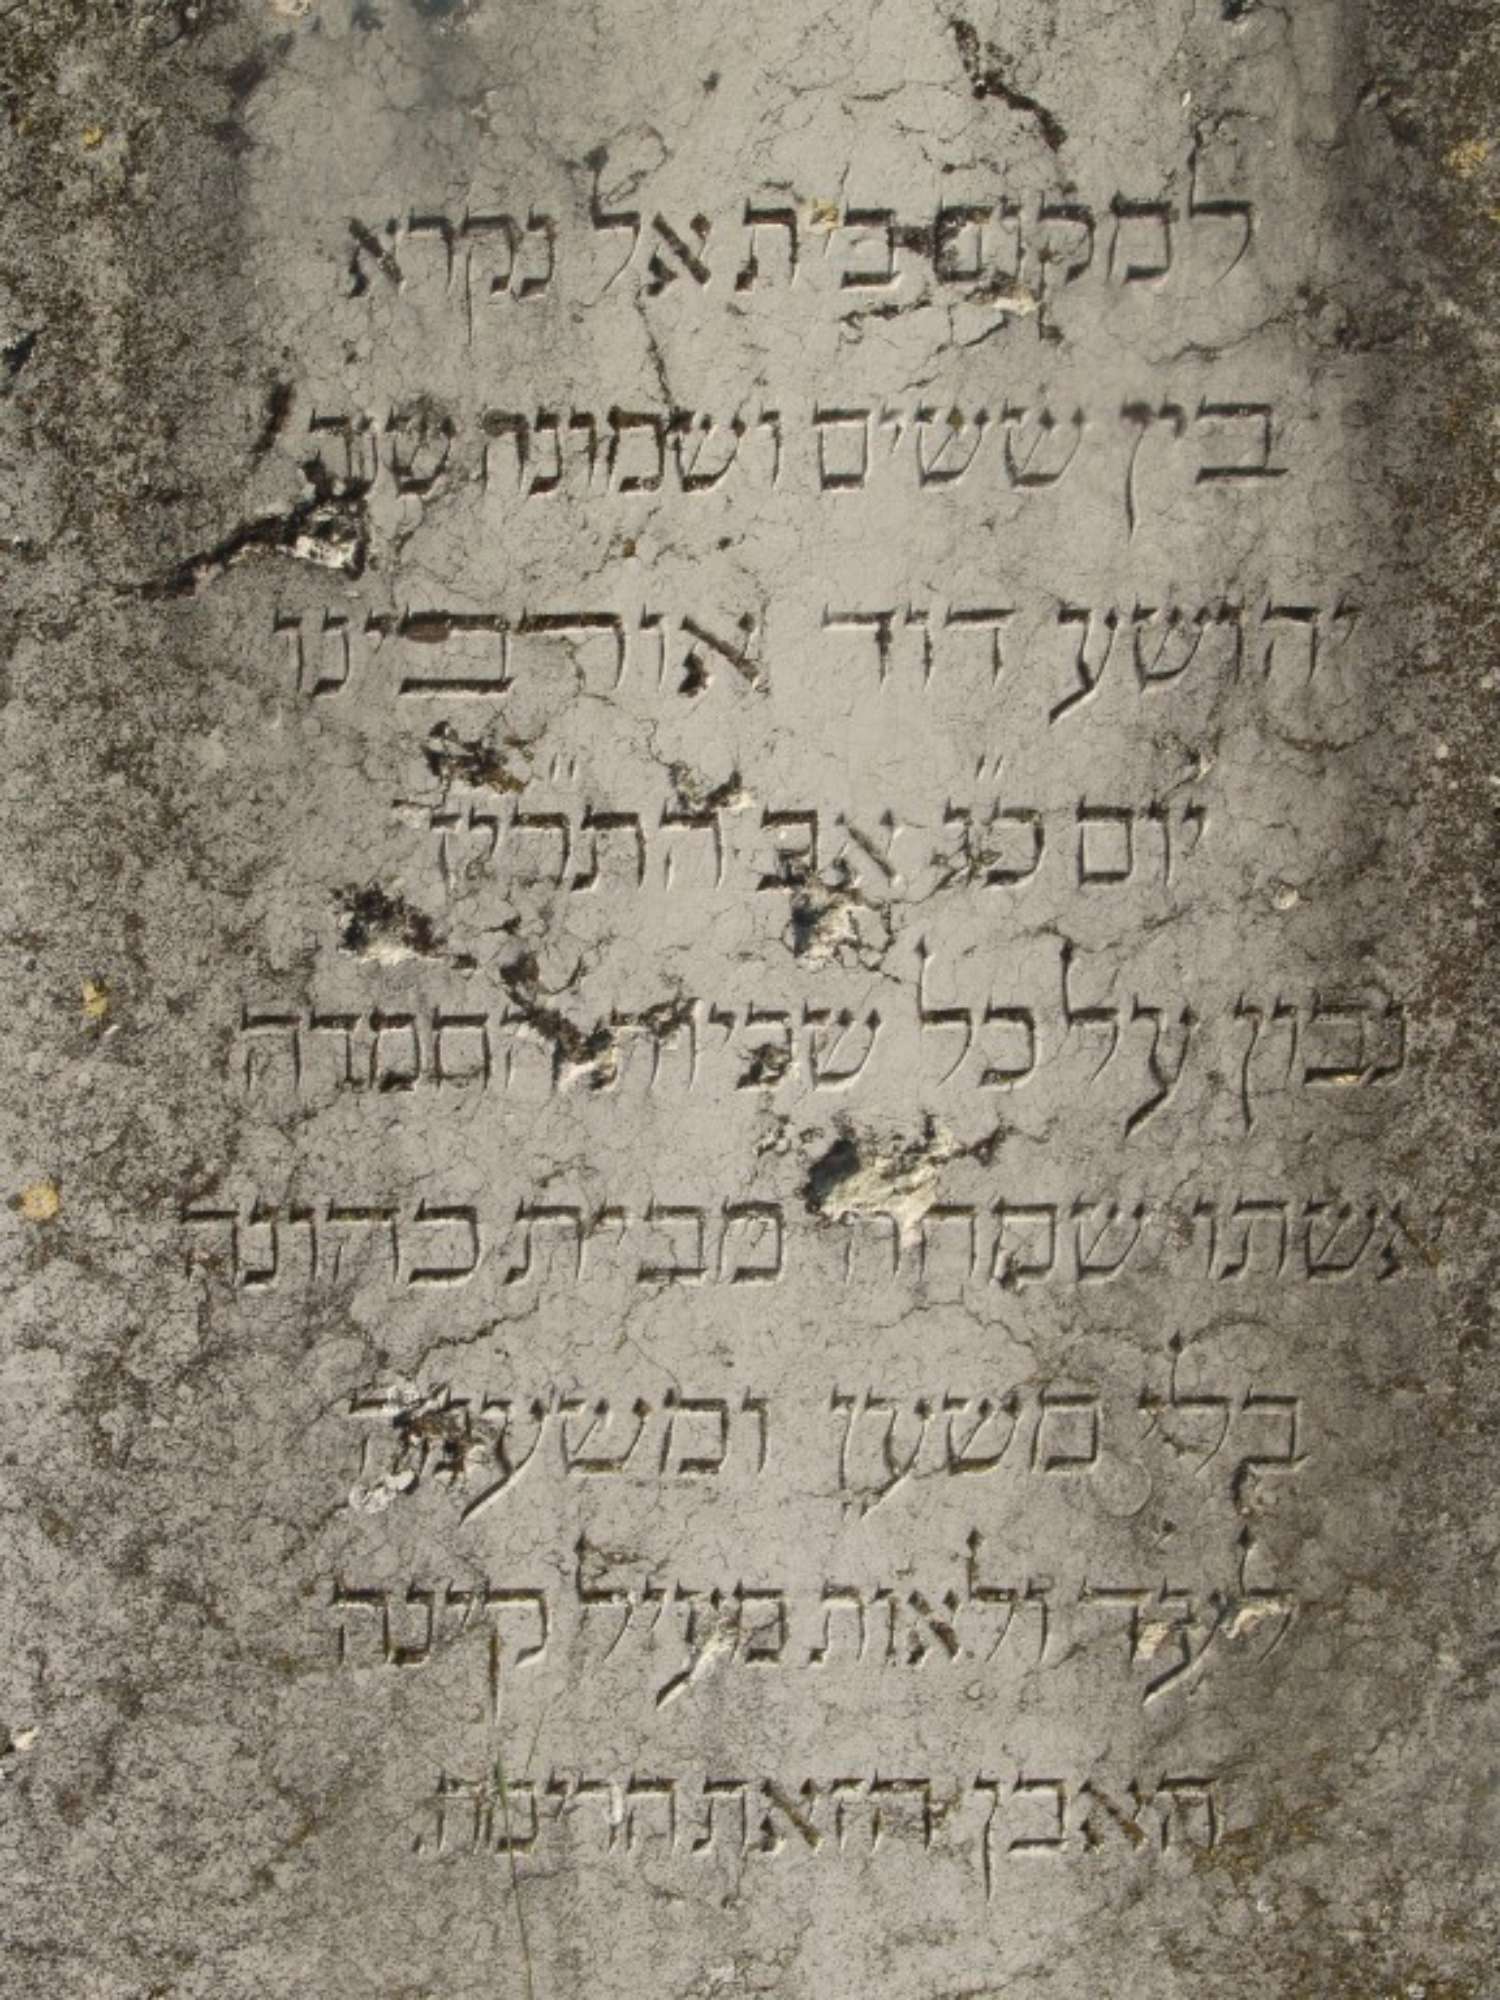 למקום בית אל נקרא
בין ששים ושמונה שנה
יהושע דוד אורבינו
יום כ״ג אב התרי״ן
נכון על כל שכיות החמדה
אשתו שמחה מבית כהונה
בלי משען ומשענה
לעד ולאות מזיל קינה
האבן הזאת הרימה